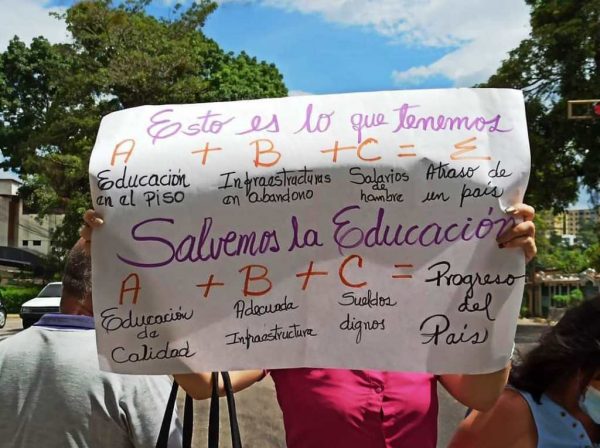 Esto es lo que tenemos
A + B + C = E
Educación en el Piso
Infraestructuras en abandono
Salarios de hambre
Atraso de un país
Salvemos la Educación
A + B + C = Progreso del País
Educación de Calidad
Adecuada Infraestructura
Sueldos dignos